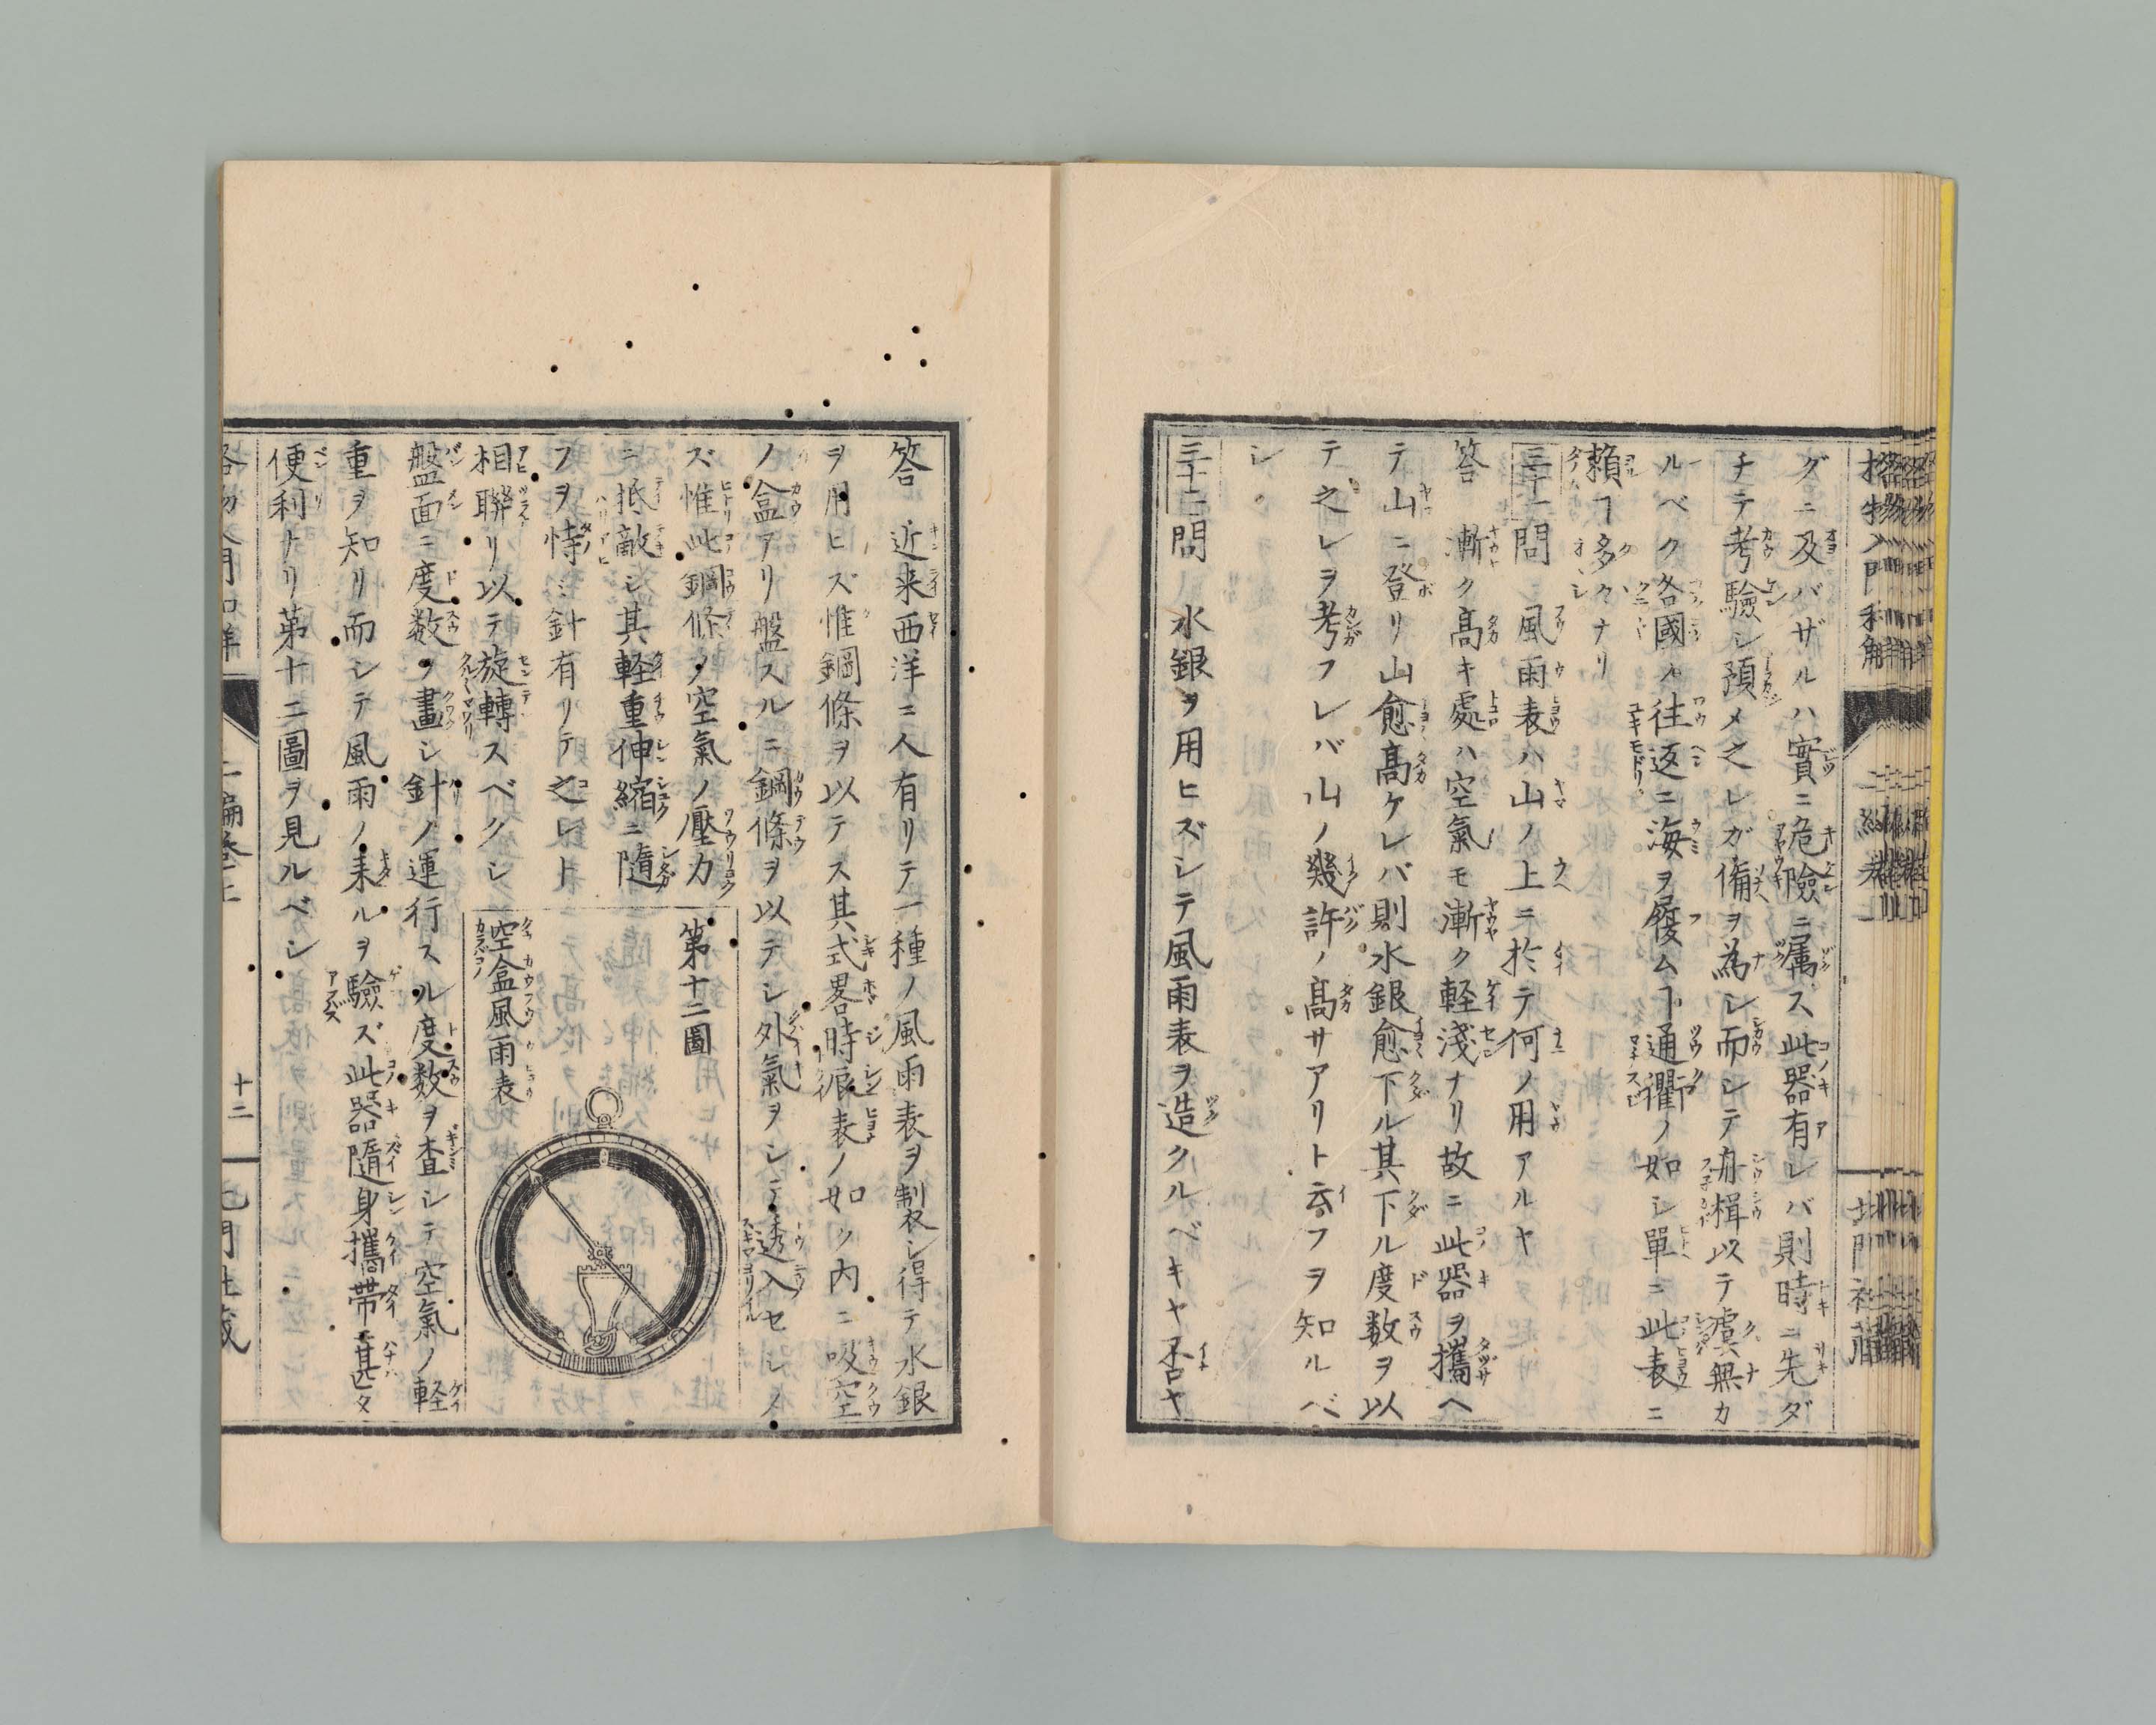 グニ及バザルハ實ニ危險ニ属ス此器有レバ則時ニ先ダ
チテ考驗シ預メ之レガ備ヲ為シ而シテ舟楫以テ虞無カ
ルベク各國ノ往返ニ海ヲ履ムヿ通衢ノ如シ單ニ此表ニ
賴ルヿ多クハナリ
三十一問 風雨表ハ山ノ上ニ於テ何ノ用アルヤ
答 漸ク高キ處ハ空氣モ漸ク軽淺ナリ故ニ此器ヲ攜ヘ
テ山ニ登リ山愈高ケレバ則水銀愈下ル其下ル度数ヲ以
テ之レヲ考フレバ山ノ幾許ノ高サアリト云フヲ知ルベ
シ
三十二問 水銀ヲ用ヒズシテ風雨表ヲ造クルベキヤ否ヤ
答 近来西洋ニ人有リテ一種ノ風雨表ヲ製シ得テ水銀
ヲ用ヒズ惟鋼條ヲ以テス其式畧時辰表ノ如ッ内ニ吸空
ノ盒アリ盤スルニ鋼條ヲ以テシ外氣ヲシテ透入セシメ
ズ惟此鋼條ノ空氣ノ壓力
ニ抵敵シ其軽重伸縮ニ隨
フヲ恃ミ針有リテ之レト
相聯リ以テ旋轉スベクシ
第十二圖
空盒風雨表
盤面ニ度数ヲ畫シ針ノ運行スル度数ヲ査シテ空氣ノ軽
重ヲ知リ而シテ風雨ノ来ルヲ驗ズ此器隨身攜帶甚タ
便利ナリ第十二圖ヲ見ルベシ
十二